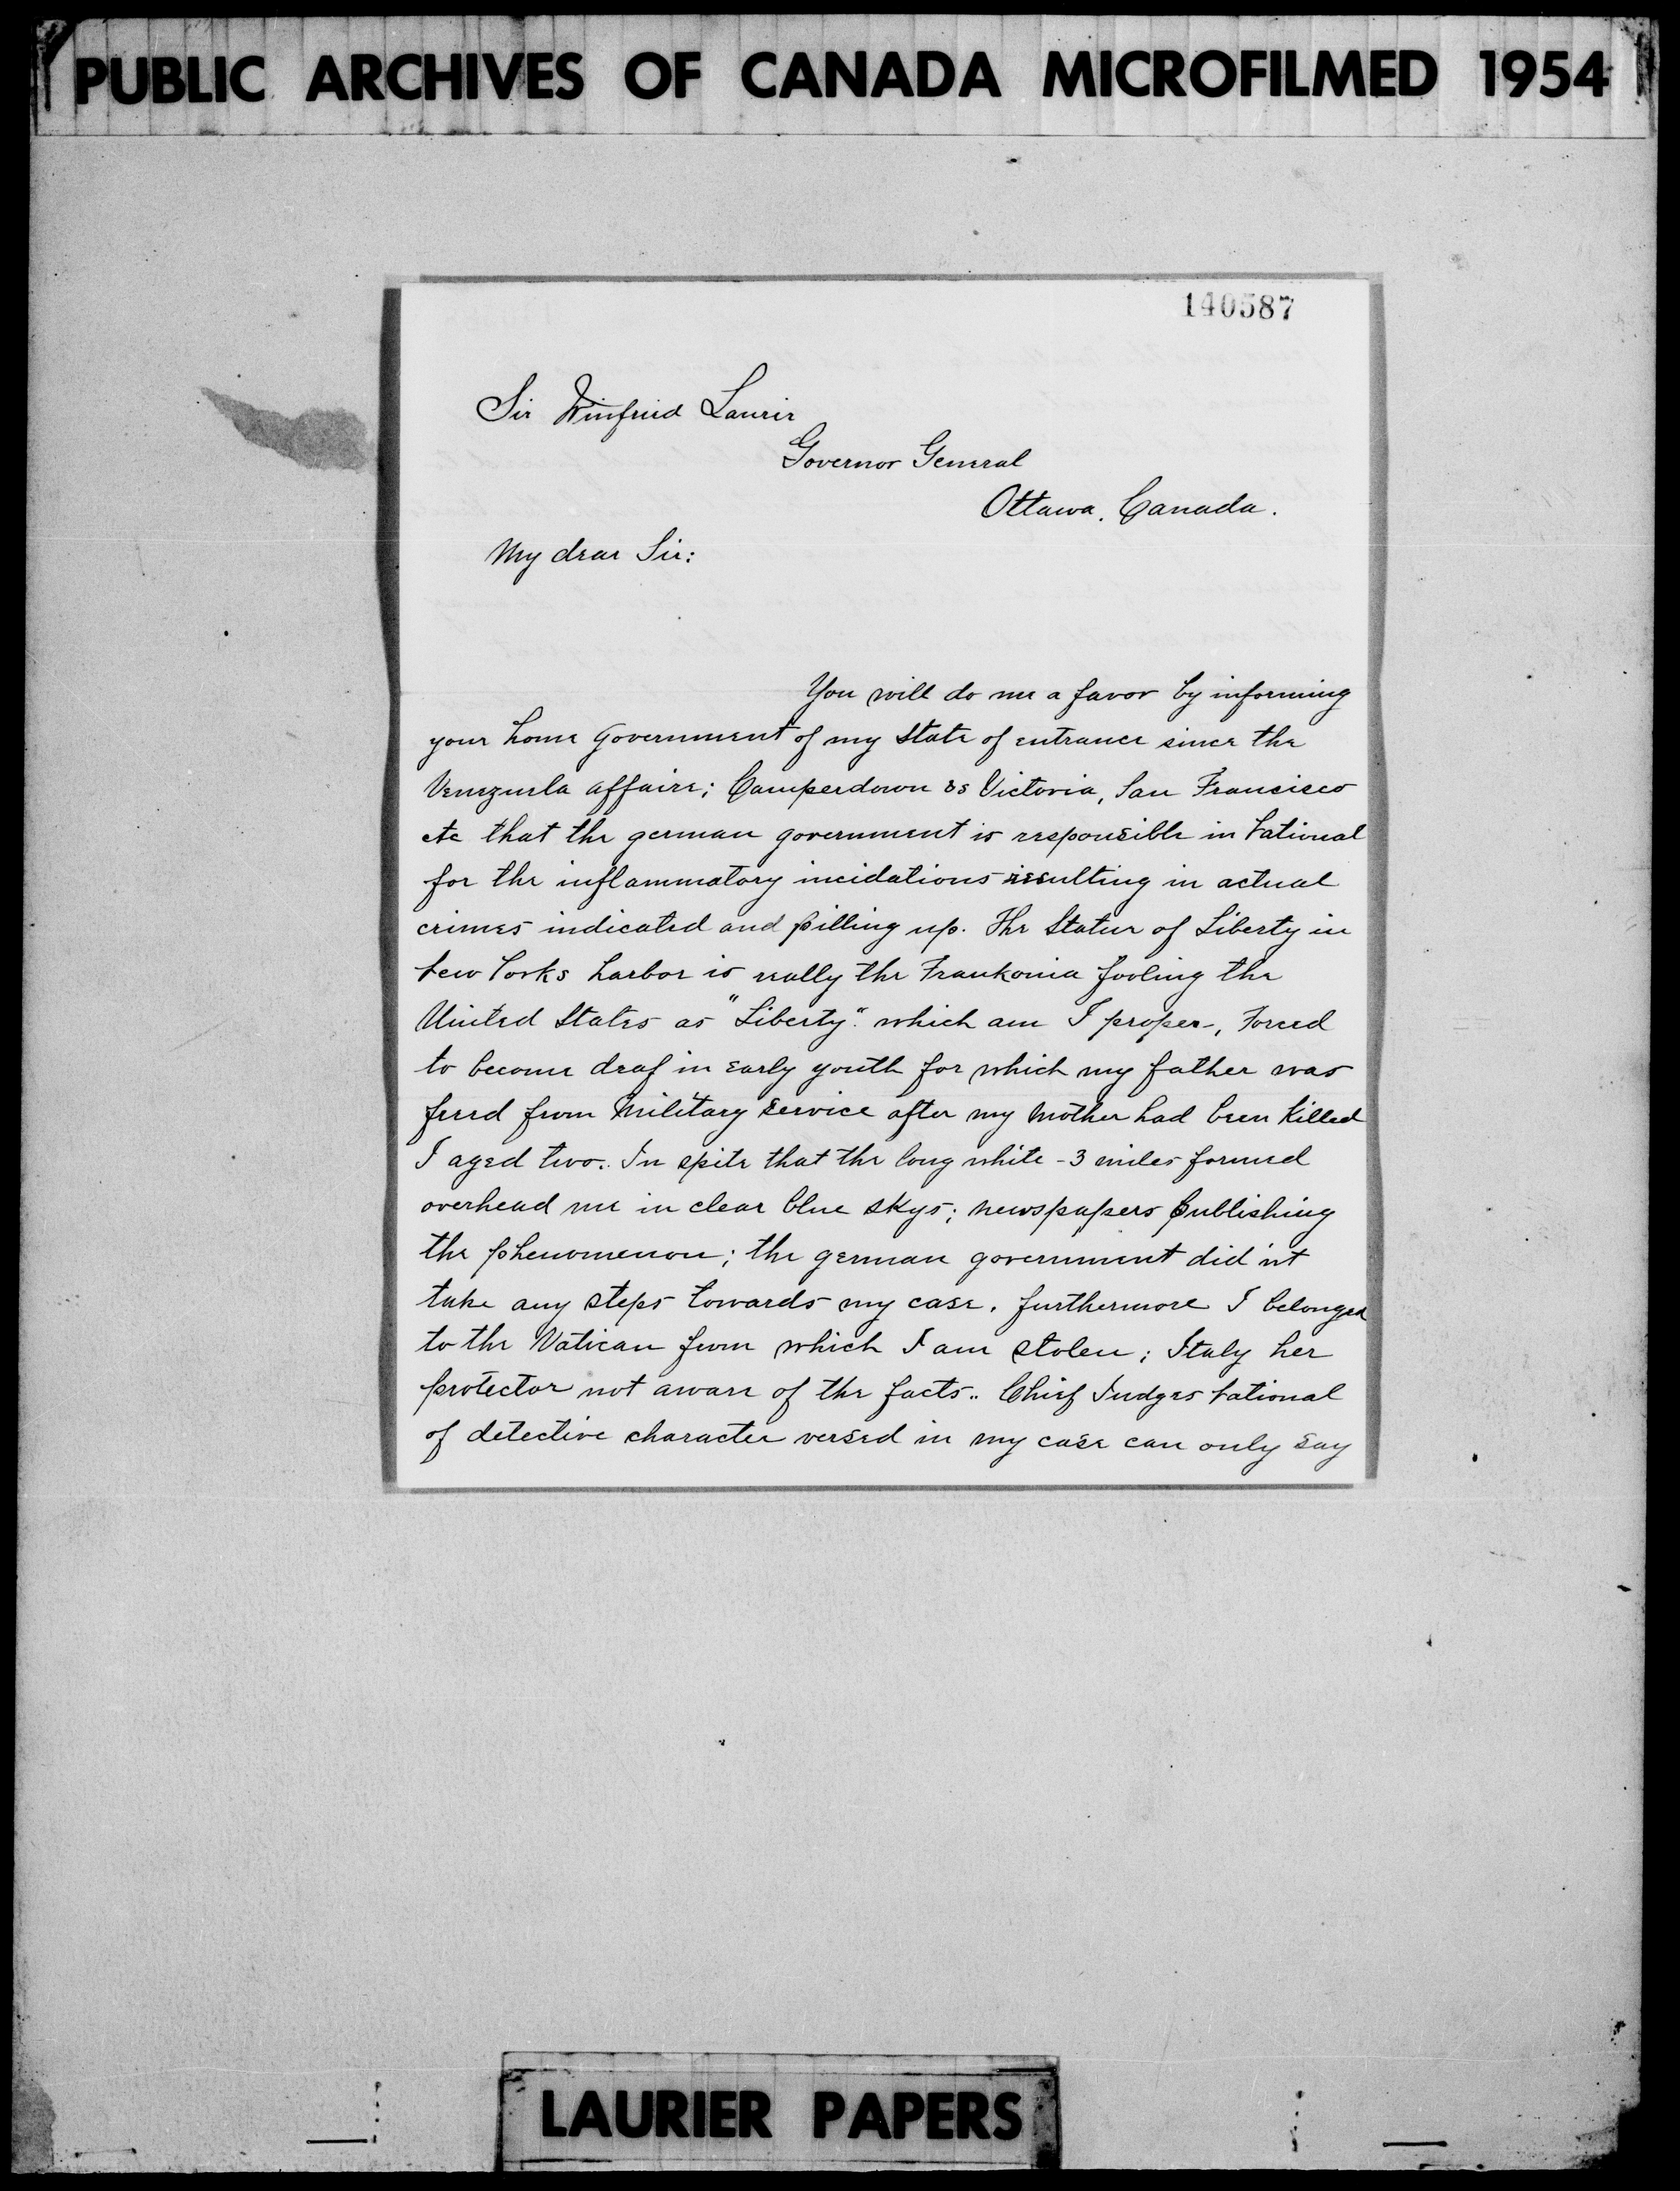 PUBLIC ARCHIVES OF CANADA MICROFILMED 1954
140587
Sir Winfried Laurir
Governor General
Ottawa. Canada.
My dear Sir:
You will do me a favor by informing
your home Government of my State of entrance since the
Venezuela affaire; Camperdown vs Victoria, San Francisco
etc that the german government is responsible in
for the inflammatory incidations resulting in actual
crimes indicated and pilling up. The Statue of Liberty in
harbor is really the Frankonia fooling the
United States as "Liberty". which am I proper-, Forced
to become deaf in early youth for which my father was
freed from Military Service after my Mother had been Killed
I aged two. In spite that the long white - 3 miles formed
overhead me in clear blue skys; newspapers publishing
the phenomenon; the german government did'nt
take any steps towards my case. furthermore I belonged
to the Vatican from which I am stolen; Italy her
protector not aware of the facts.. Chief Judges
of detective character versed in my case can only say
LAURIER PAPERS